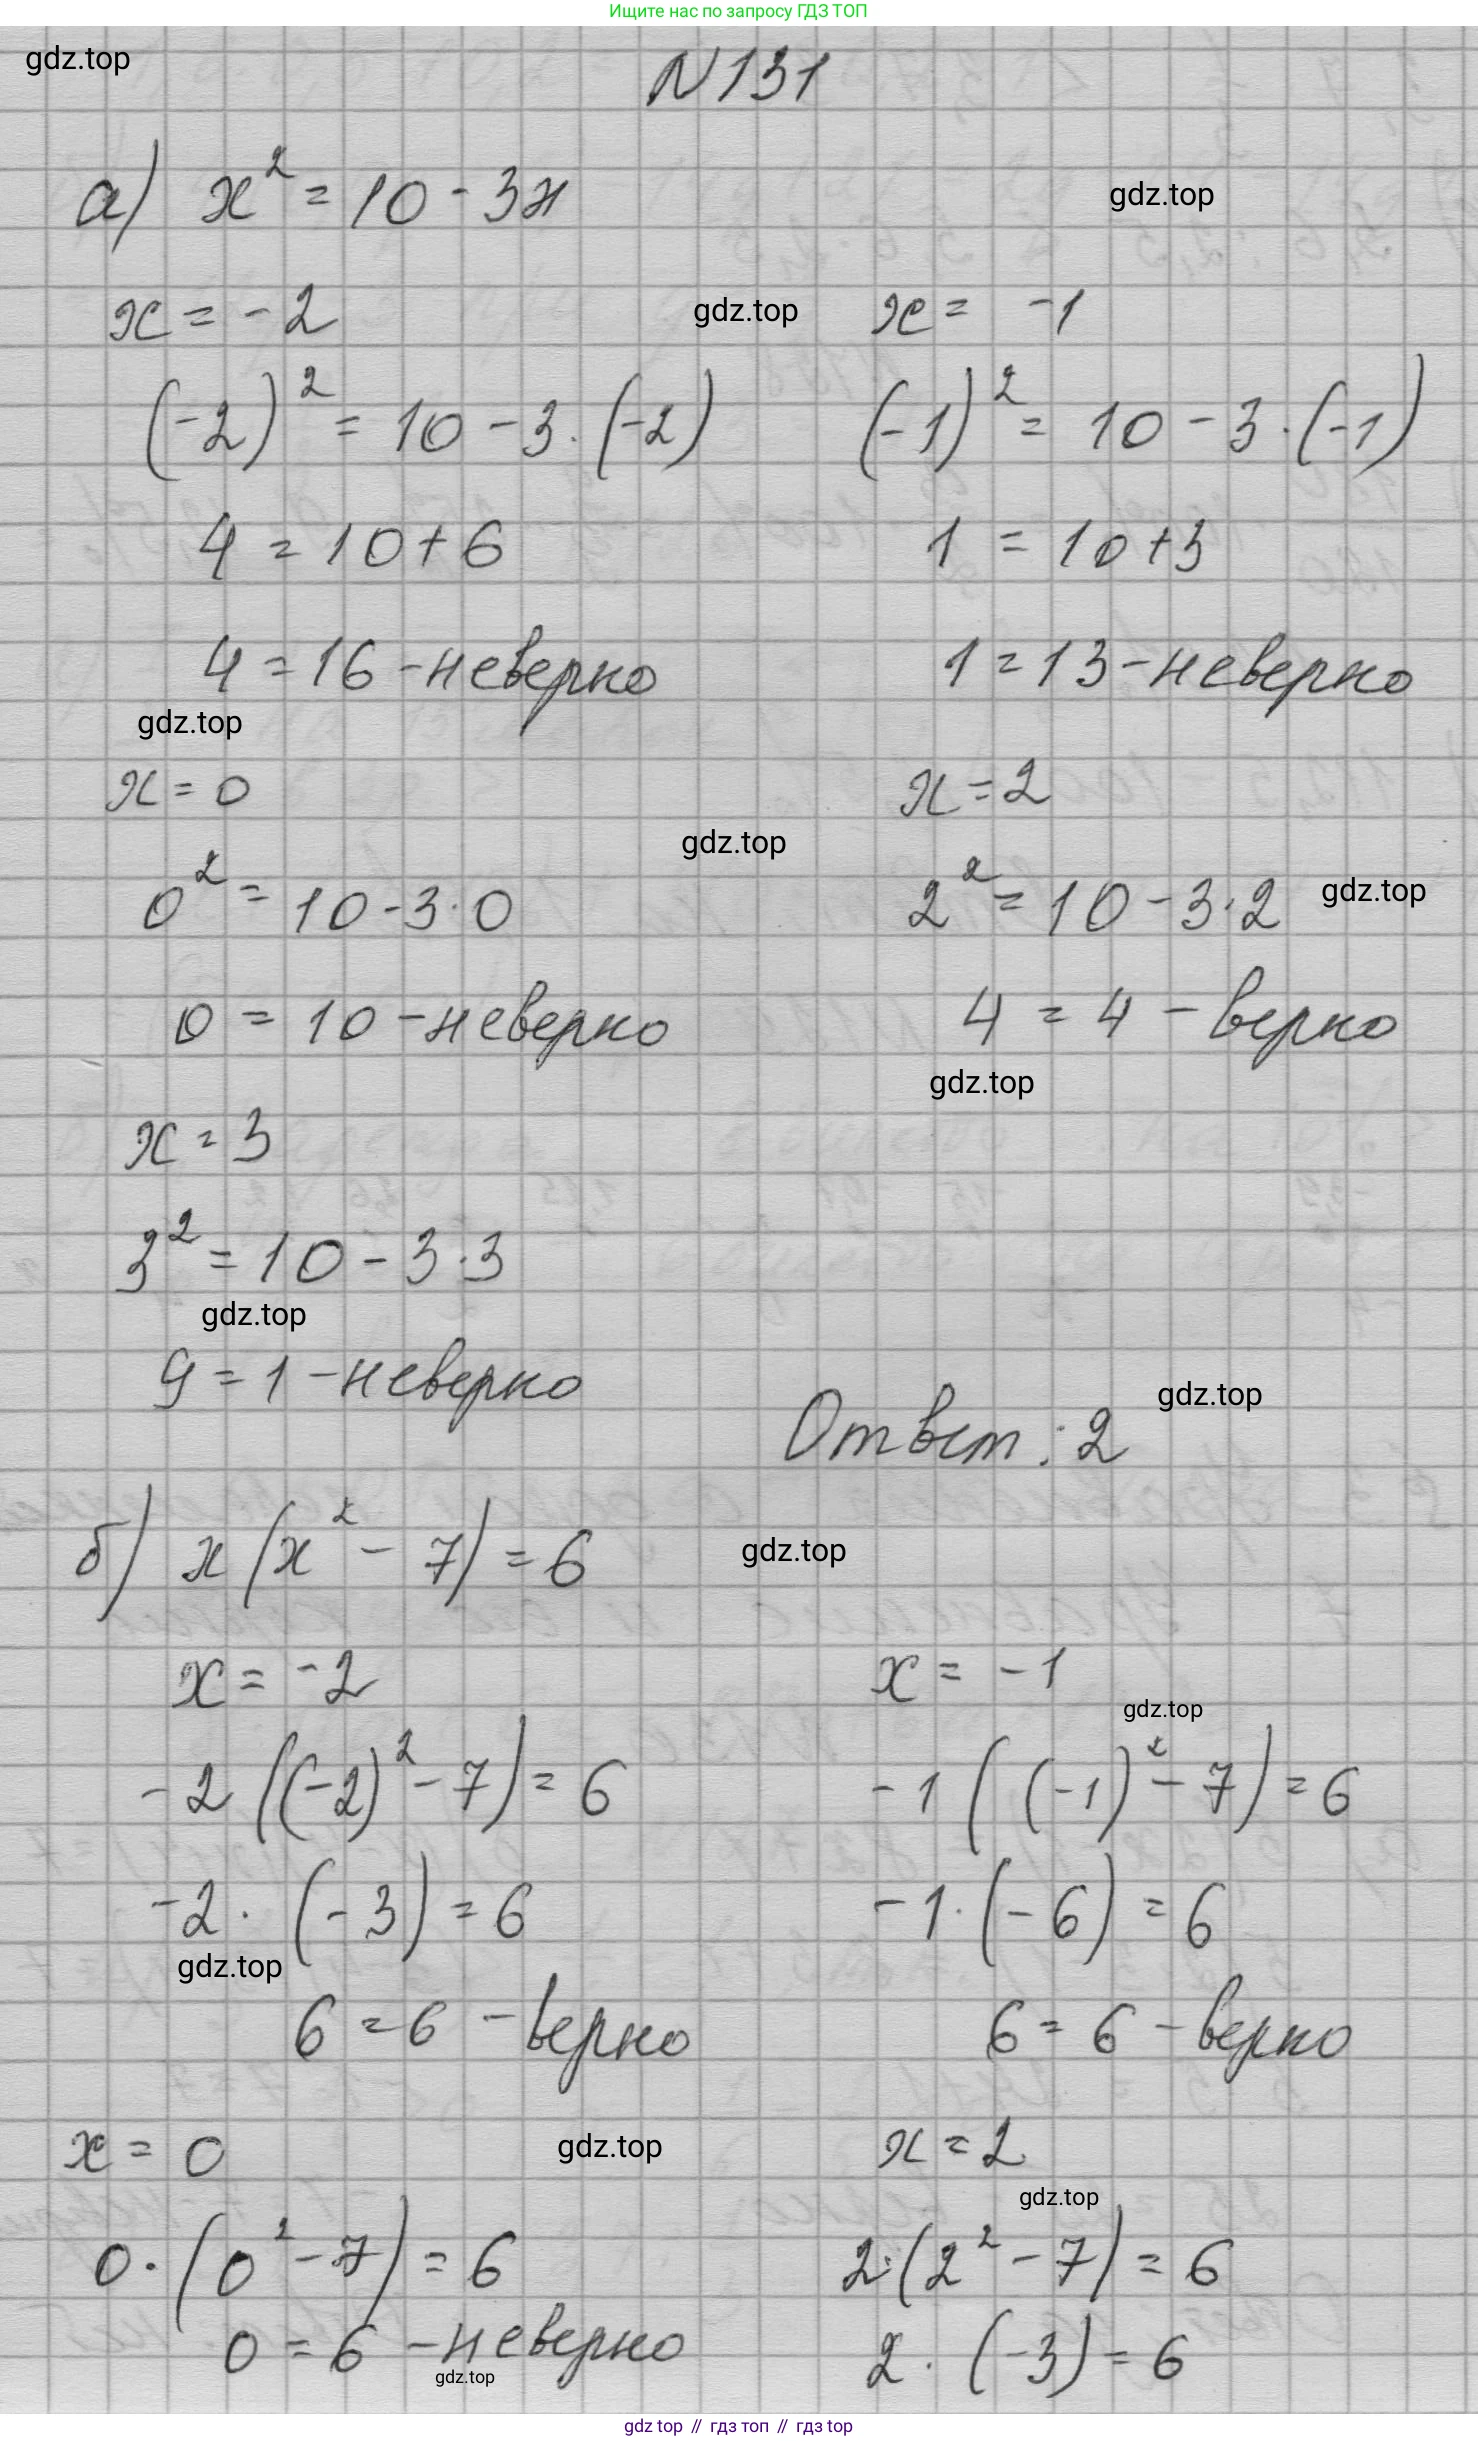 Ищите нас по запросу ГДЗ ТОП
gdz.top
N131
а) x² = 10 - 3x
gdz.top
x = -2
gdz.top
x = -1
(-2)² = 10 - 3·(-2)
(-1)² = 10 - 3·(-1)
4 = 10 + 6
1 = 10 + 3
4 = 16 - неверно
1 = 13 - неверно
gdz.top
x = 0
x = 2
gdz.top
0² = 10 - 3·0
2² = 10 - 3·2
gdz.top
0 = 10 - неверно
4 = 4 - верно
gdz.top
x = 3
3² = 10 - 3·3
gdz.top
9 = 1 - неверно
gdz.top
Ответ: 2
б) x(x² - 7) = 6
gdz.top
x = -2
x = -1
gdz.top
-2((-2)² - 7) = 6
-1((-1)² - 7) = 6
-2·(-3) = 6
-1·(-6) = 6
gdz.top
6 = 6 - верно
6 = 6 - верно
x = 0
gdz.top
x = 2
gdz.top
0·(0² - 7) = 6
2·(2² - 7) = 6
0 = 6 - неверно
2·(-3) = 6
gdz.top
gdz top // гдз топ // гдз top